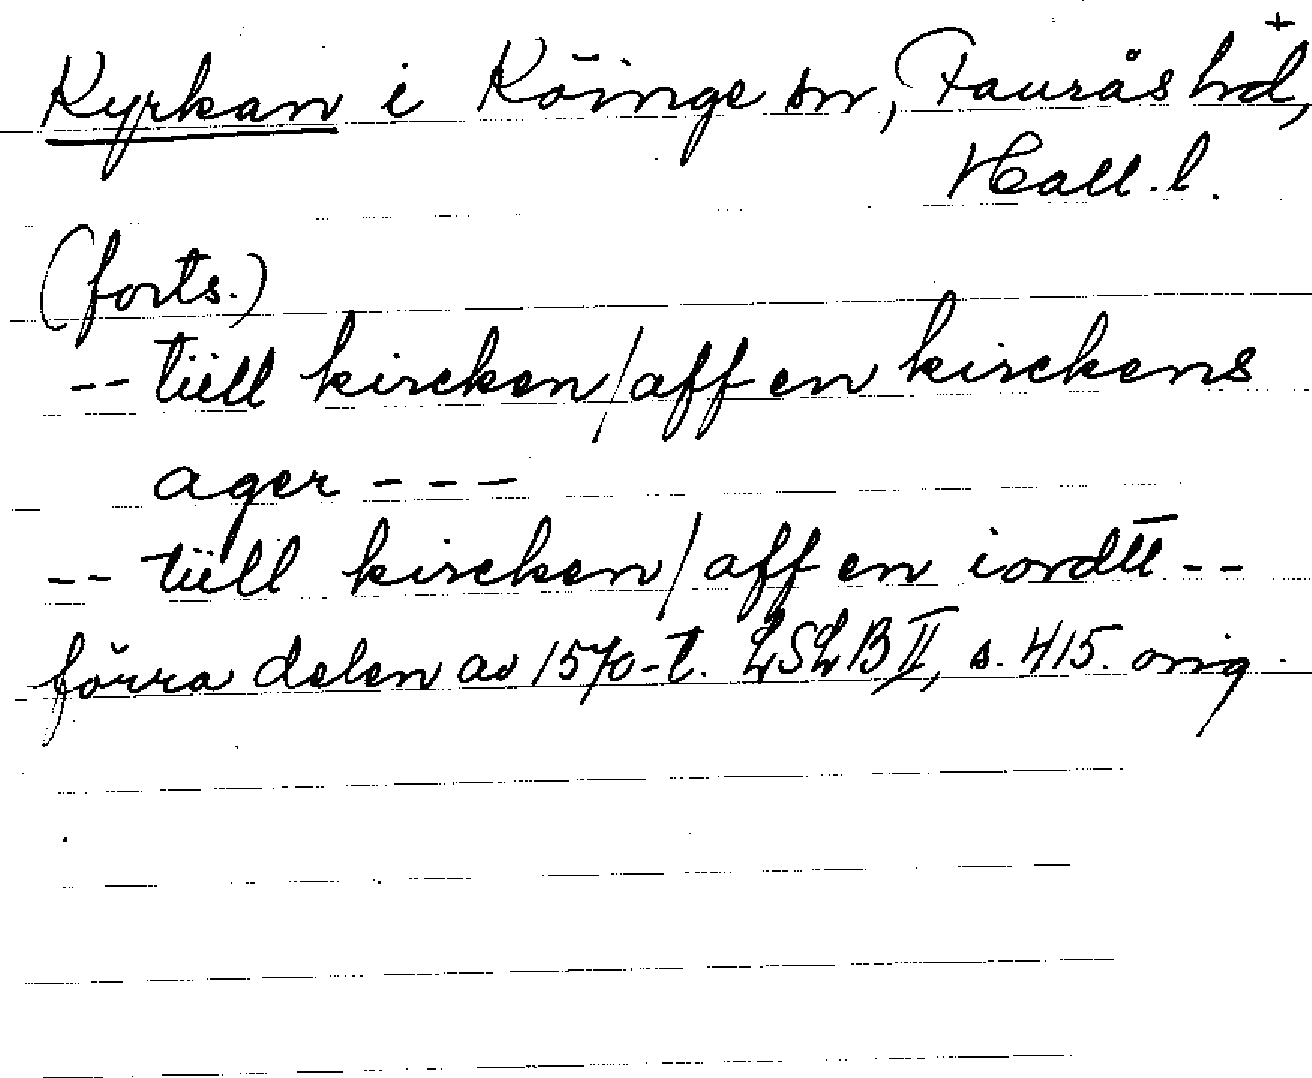 +
Kyrkan i Köinge sn, Faurås hd,
Hall. l.
(forts.)
-- tüll kircken / aff en kirckens
ager ---
-- tüll kircken / aff en iordtt --
förra delen av 1570-t. LSLB II, s. 415. orig.